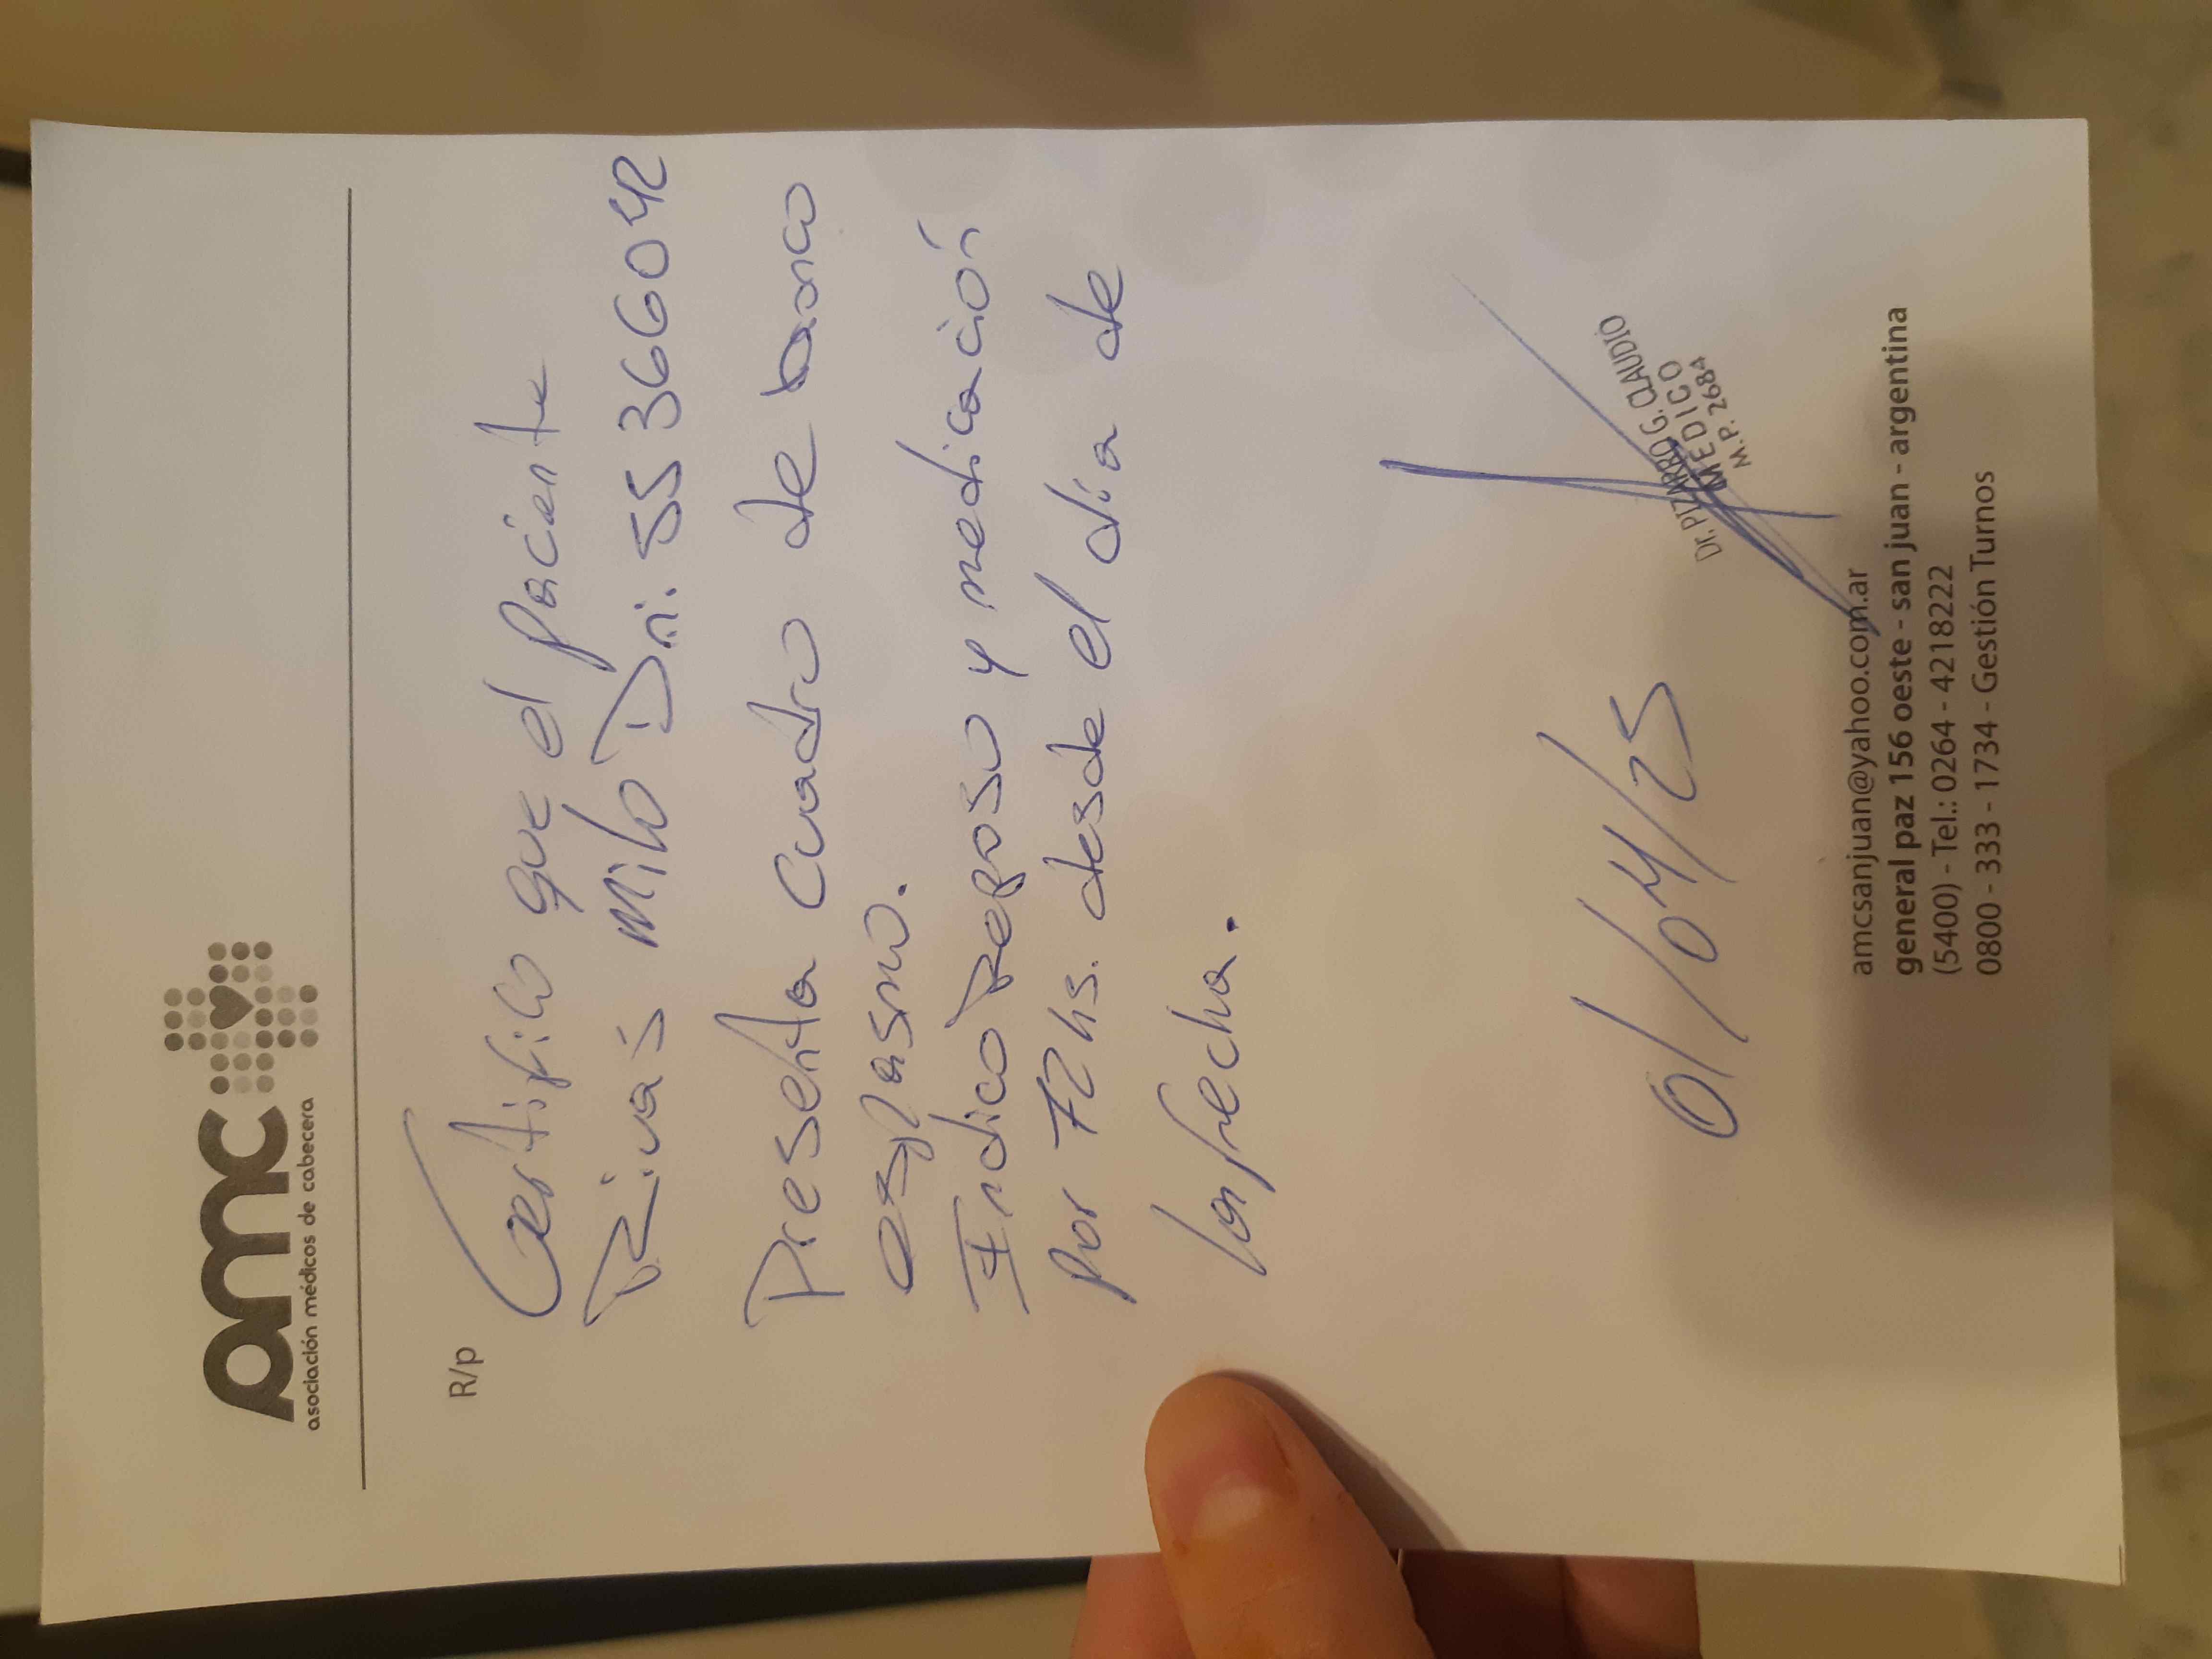 amc
asociación médicos de cabecera
R/p
Certifico que el paciente
Rivas Milo Dni. 55366042
Presenta cuadro de bronco
espasmo.
Indico Reposo y medicación
por 72 hs. desde el día de
la fecha.
01/04/25
Dr. PIZARRO G. CLAUDIO
MEDICO
M.P. 2684
amcsanjuan@yahoo.com.ar
general paz 156 oeste - san juan - argentina
(5400) - Tel.: 0264 - 4218222
0800 - 333 - 1734 - Gestión Turnos